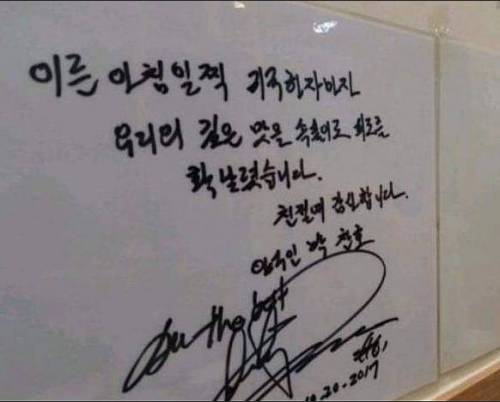 이른 아침일찍 귀국하자마자
우리의 깊은 맛을 속풀이로 피로를
확 날렸습니다.
친절에 감사합니다.
야구인 박 찬호
the best
10.20.2017